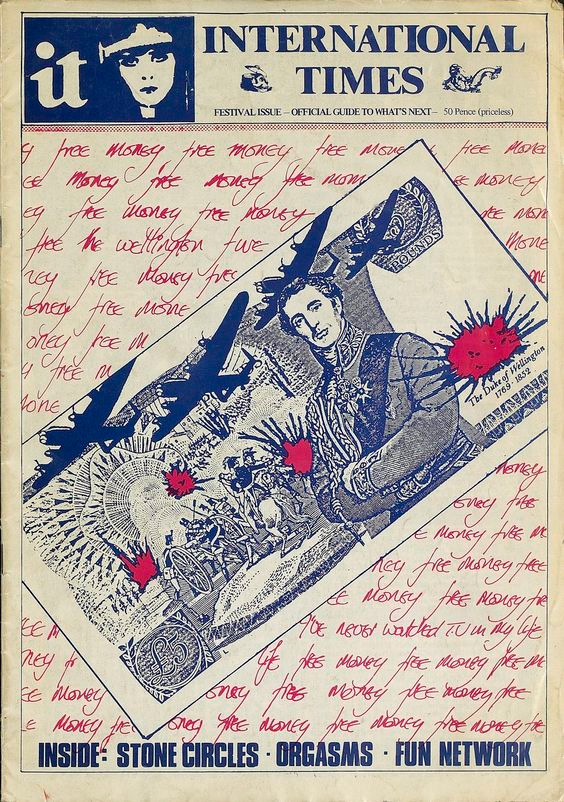 it
INTERNATIONAL
TIMES
FESTIVAL ISSUE – OFFICIAL GUIDE TO WHAT'S NEXT – 50 Pence (priceless)
y free money free money free money free mone
ee money free money free mon ee money
ey free money free money ree mone
free the wellington five mone
ney free money free one
oney free mone
oney free m
y free m
one
POUNDS
The Duke of Wellington
1769 - 1852
£5
money
oney free
e money free mo
ney free money free
ee money free money fre
ee m I've never watched T.V in my life
ney fr life free money free money free m
ee money oney free money free money free
e money free oney free money free money free money fre
INSIDE: STONE CIRCLES · ORGASMS · FUN NETWORK